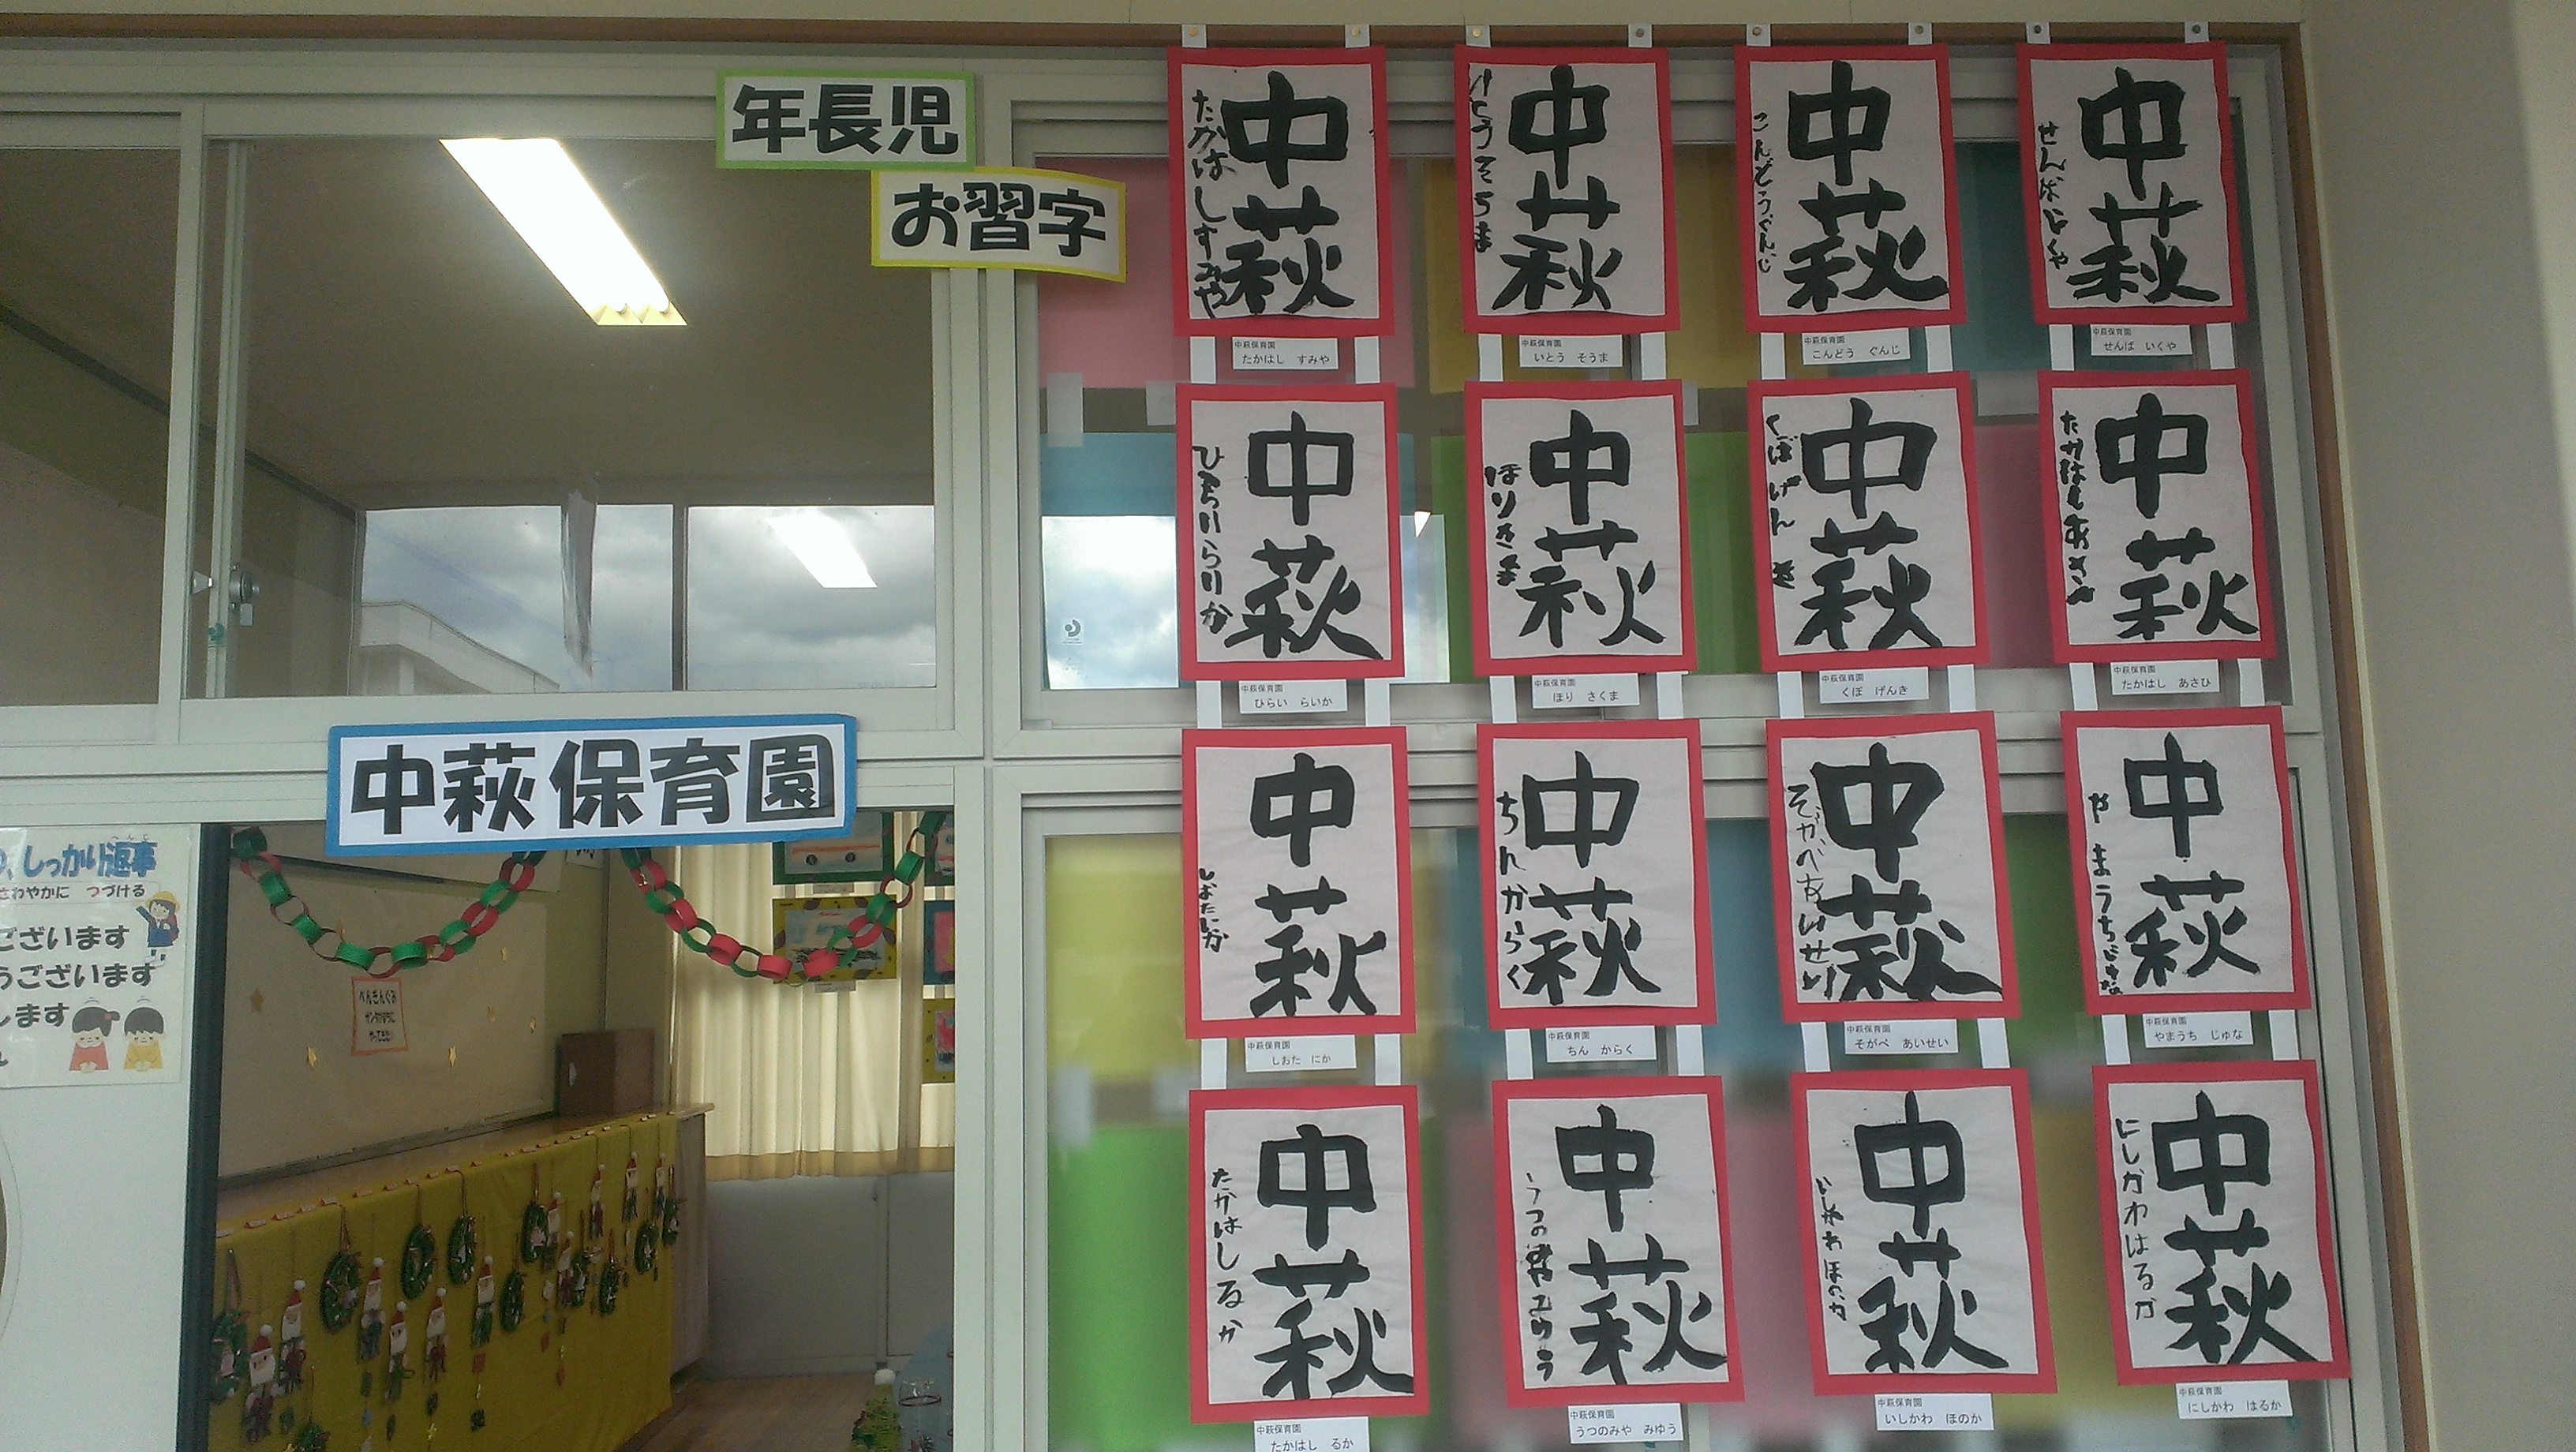 年長児
お習字
中萩保育園
しっかり返事
さわやかに つづける
ございます
うございます
します
中萩
たかはしすみや
中萩保育園
たかはし すみや
中萩
いとうそうま
中萩保育園
いとう そうま
中萩
こんどうぐんじ
中萩保育園
こんどう ぐんじ
中萩
せんばいくや
中萩保育園
せんば いくや
中萩
ひらいらいか
中萩保育園
ひらい らいか
中萩
ほりさくま
中萩保育園
ほり さくま
中萩
くぼげんき
中萩保育園
くぼ げんき
中萩
たかはしあさひ
中萩保育園
たかはし あさひ
中萩
しおたにか
中萩保育園
しおた にか
中萩
ちんからく
中萩保育園
ちん からく
中萩
そがべあいせい
中萩保育園
そがべ あいせい
中萩
やまうちじゅな
中萩保育園
やまうち じゅな
中萩
たかはしるか
中萩保育園
たかはし るか
中萩
うつのみやみゆう
中萩保育園
うつのみや みゆう
中萩
いしかわほのか
中萩保育園
いしかわ ほのか
中萩
にしかわはるか
中萩保育園
にしかわ はるか